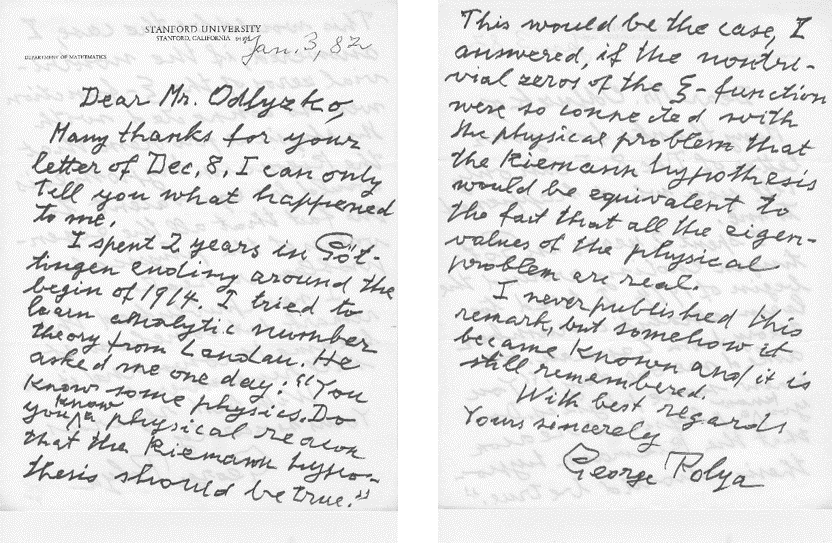 STANFORD UNIVERSITY
STANFORD, CALIFORNIA
DEPARTMENT OF MATHEMATICS
Jan. 3, 82
Dear Mr. Odlyzko,
Many thanks for your
letter of Dec, 8. I can only
tell you what happened
to me.
I spent 2 years in Göt-
tingen ending around the
begin of 1914. I tried to
learn analytic number
theory from Landau. He
asked me one day: "You
know some physics. Do
you know a physical reason
that the Riemann hypo-
thesis should be true."
This would be the case, I
answered, if the nontri-
vial zeros of the ξ-function
were so connected with
the physical problem that
the Riemann hypothesis
would be equivalent to
the fact that all the eigen-
values of the physical
problem are real.
I never published this
remark, but somehow it
became known and it is
still remembered.
With best regards
Yours sincerely
George Polya